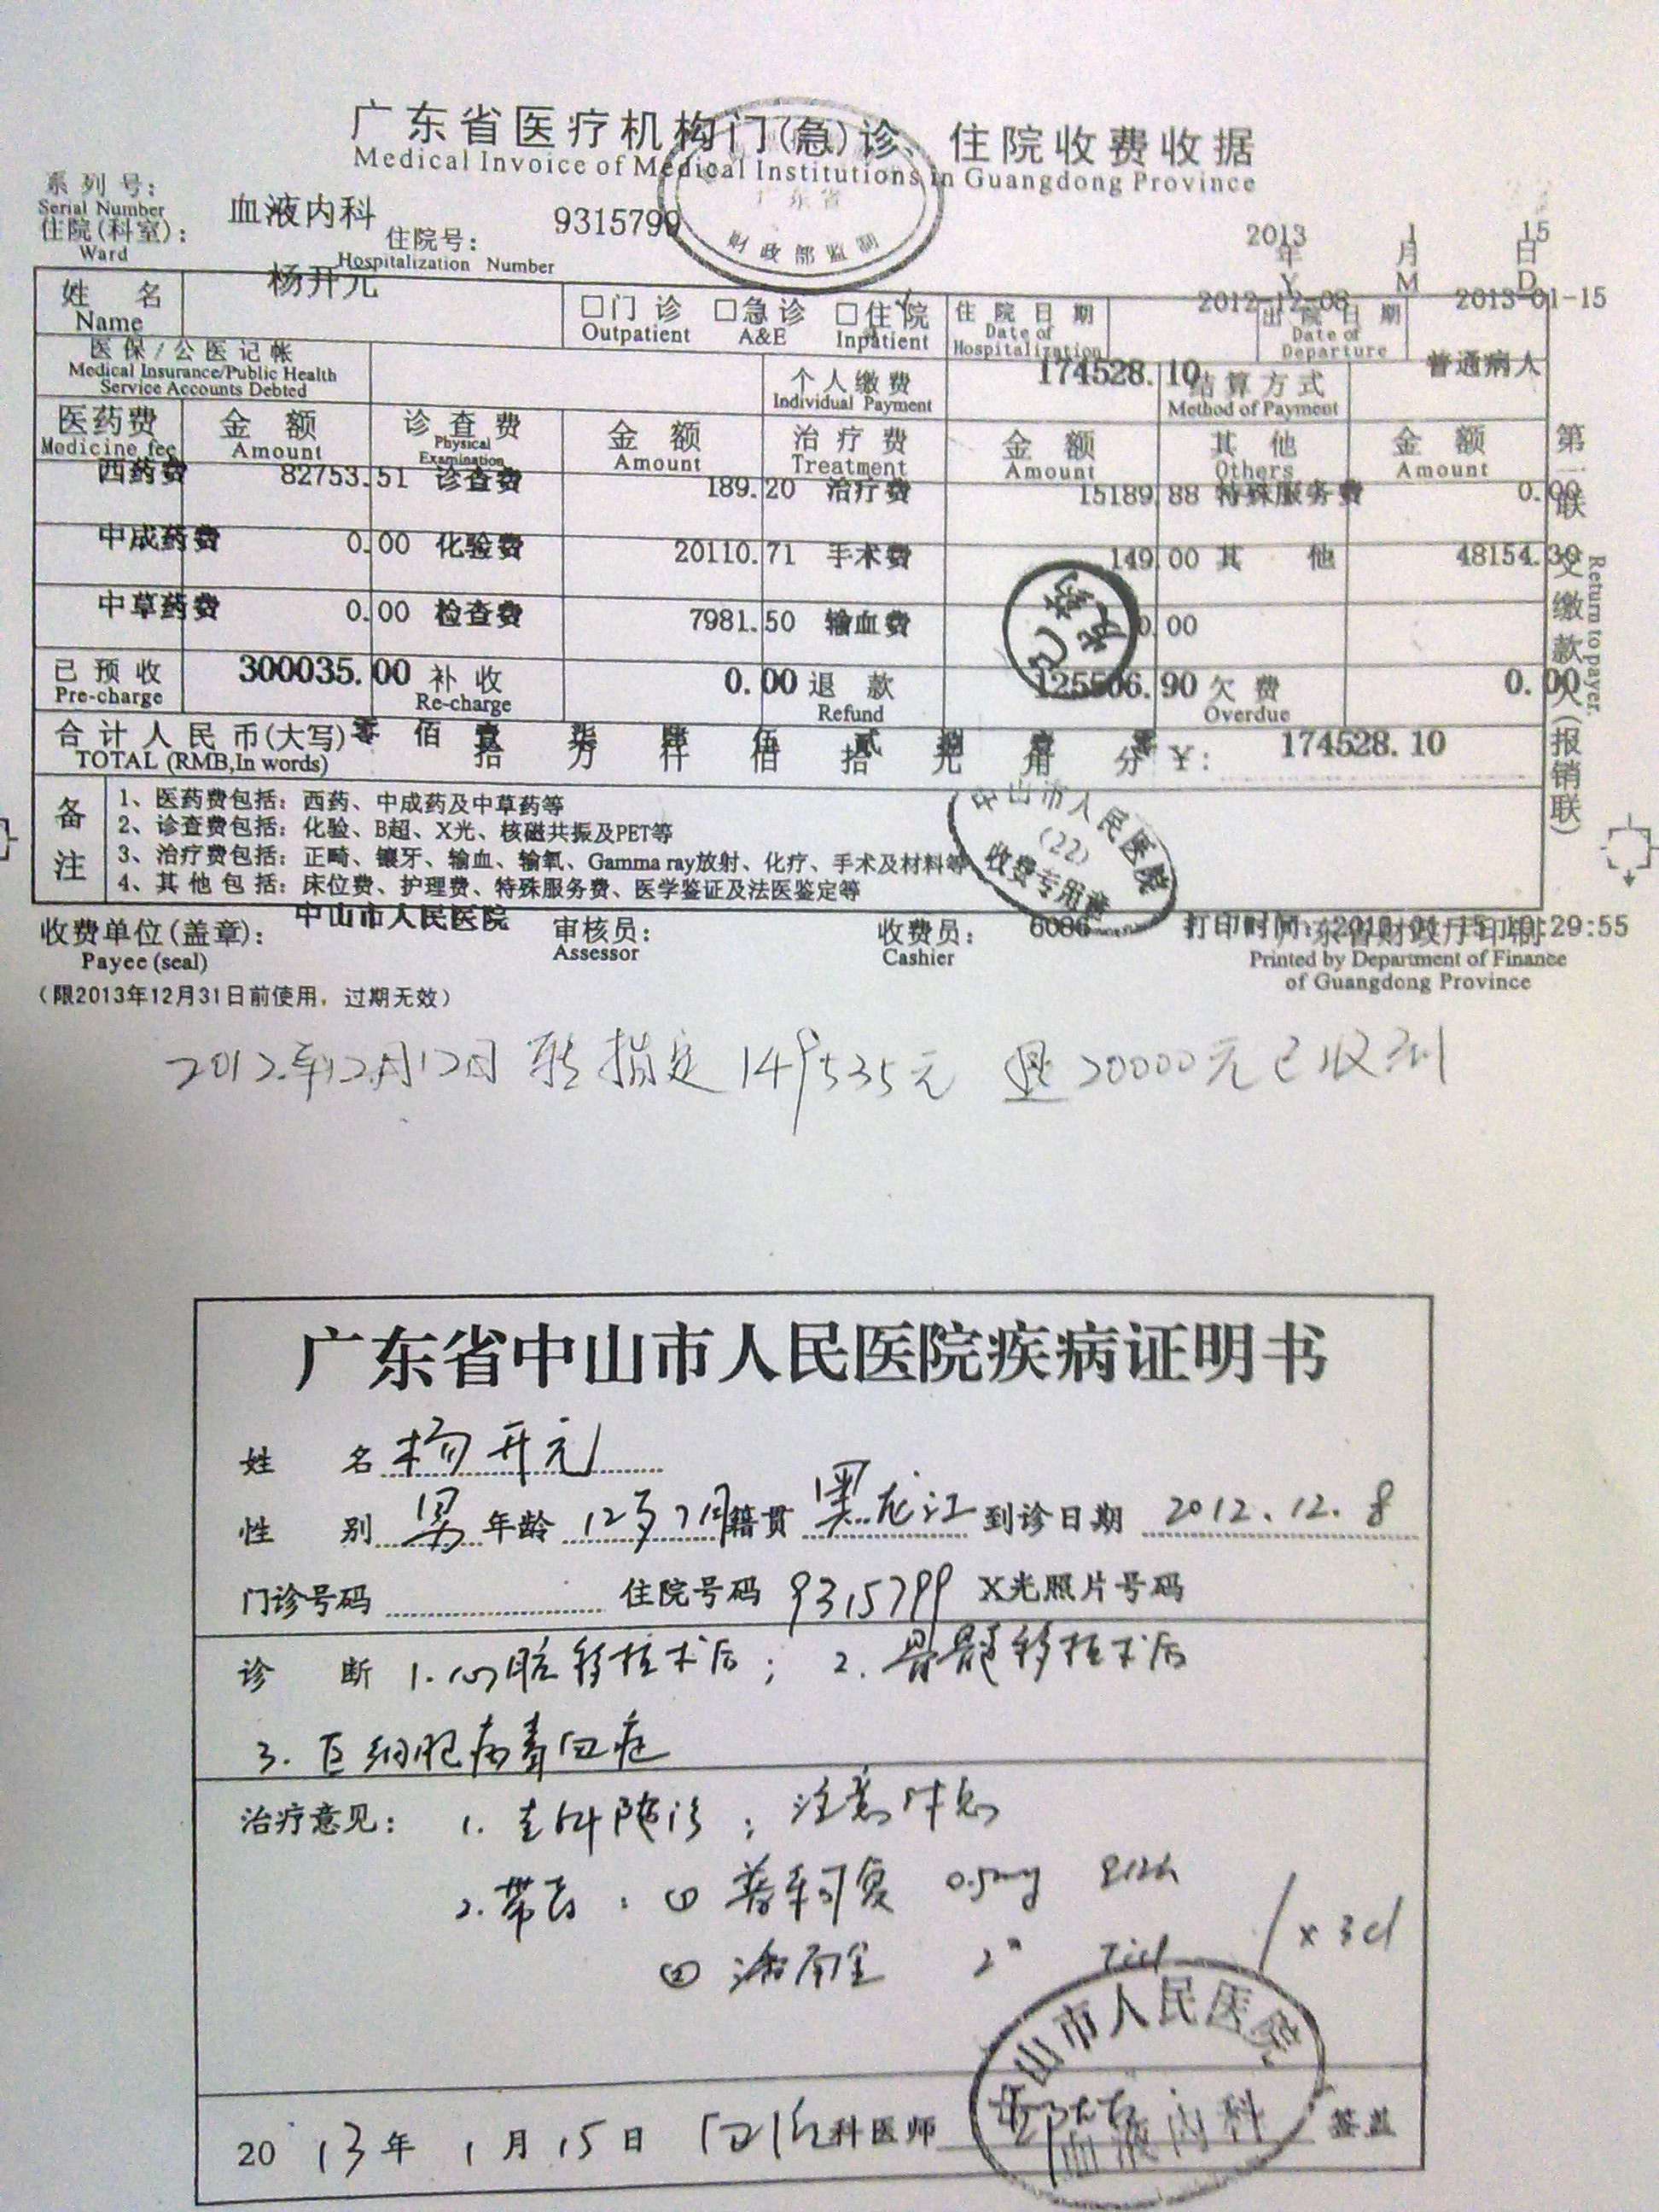 广东省医疗机构门(急)诊、住院收费收据
Medical Invoice of Medical Institutions in Guangdong Province
广东省
财政部监制
系列号:
Serial Number
住院(科室): 血液内科 住院号: 9315799
Ward Hospitalization Number
2013年 1月 15日
Y M D
姓名 杨开元 □门诊 □急诊 □住院 √ 住院日期 2012-12-08 出院日期 2013-01-15
Name Outpatient A&E Inpatient Date of Hospitalization Date of Departure
医保/公医记帐 个人缴费 174528.10 结算方式 普通病人
Medical Insurance/Public Health Service Accounts Debted Individual Payment Method of Payment
医药费 金额 诊查费 金额 治疗费 金额 其他 金额
Medicine fee Amount Physical Examination Amount Treatment Amount Others Amount
西药费 82753.51 诊查费 189.20 治疗费 15189.88 特殊服务费 0.00
中成药费 0.00 化验费 20110.71 手术费 149.00 其他 48154.30
中草药费 0.00 检查费 7981.50 输血费 0.00
已预收 300035.00 补收 0.00 退款 125506.90 欠费 0.00
Pre-charge Re-charge Refund Overdue
合计人民币(大写) 零佰壹拾柒万肆仟伍佰贰拾捌元壹角零分 ¥: 174528.10
TOTAL (RMB,In words)
备注
1、医药费包括: 西药、中成药及中草药等
2、诊查费包括: 化验、B超、X光、核磁共振及PET等
3、治疗费包括: 正畸、镶牙、输血、输氧、Gamma ray放射、化疗、手术及材料等
4、其他包括: 床位费、护理费、特殊服务费、医学鉴证及法医鉴定等
中山市人民医院
(22)
收费专用章
收费单位(盖章): 中山市人民医院 审核员: 收费员: 6086 打印时间:
Payee (seal) Assessor Cashier
广东省财政厅印制
Printed by Department of Finance
of Guangdong Province
(限2013年12月31日前使用,过期无效)
第一联 交缴款人(报销联)
Return to payer.
2012年12月12日 转指定149535元 退20000元已收到
广东省中山市人民医院疾病证明书
姓名 杨开元
性别 男 年龄 12岁7月 籍贯 黑龙江 到诊日期 2012.12.8
门诊号码 住院号码 9315799 X光照片号码
诊断 1.心脏移植术后; 2.骨髓移植术后
3.巨细胞病毒血症
治疗意见: 1. 专科随诊; 注意休息
2.带药: ① 普乐可复 0.5mg q12h
② 2# Tid ×3d
中山市人民医院
血液内科
2013年1月15日 血液科医师 签盖